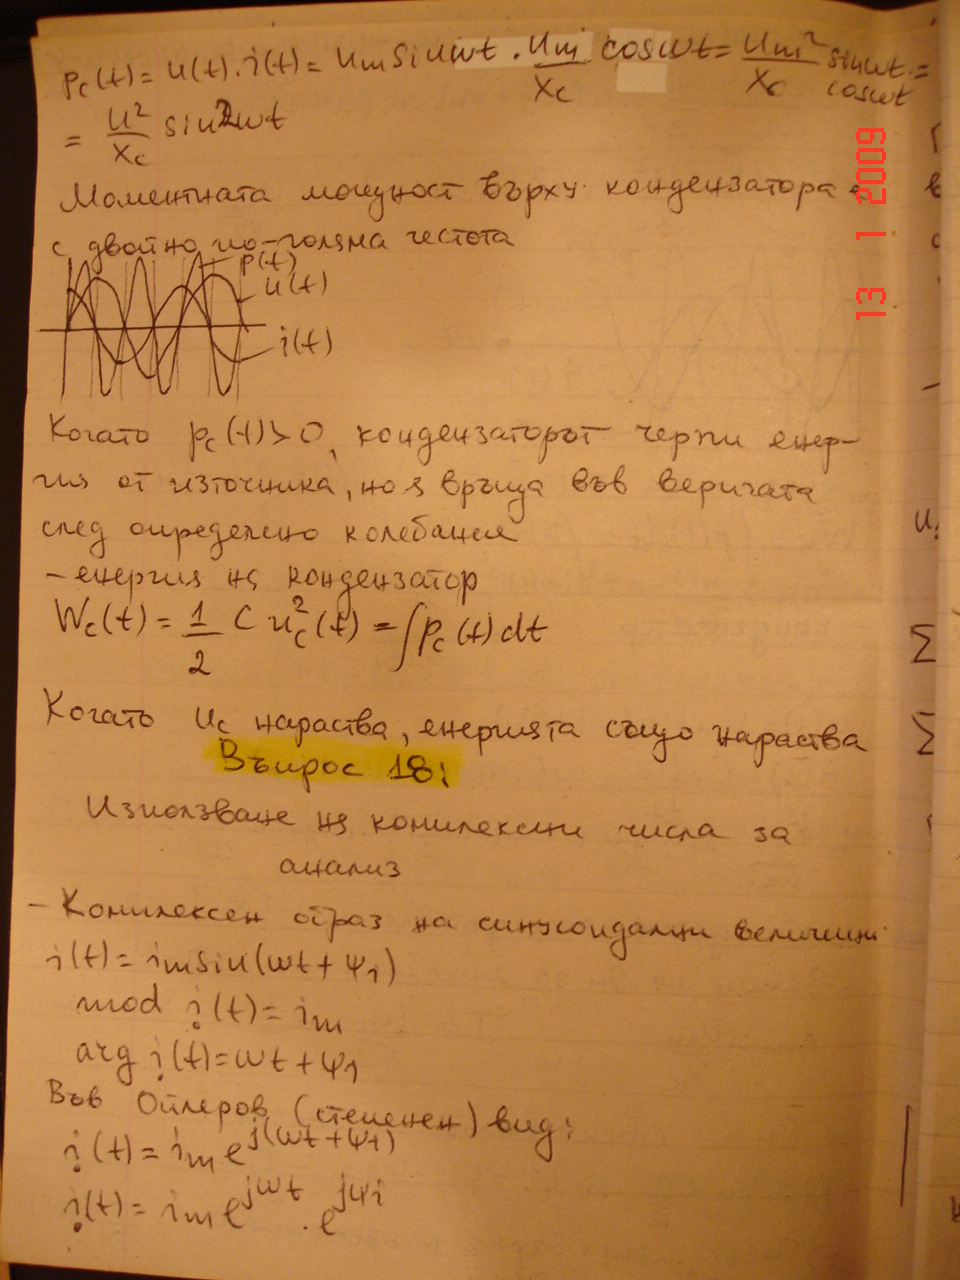 pc(t) = u(t).i(t) = Um sinωt . Um/Xc cosωt = Um²/Xc sinωt cosωt =
= U²/Xc sin2ωt
Моментната мощност върху кондензатора е
с двойно по-голяма честота
p(t)
u(t)
i(t)
Когато pc(t)>0, кондензаторът черпи енер-
гия от източника, но я връща във веригата
след определено колебание
- енергия на кондензатор
Wc(t) = 1/2 C uc²(t) = ∫pc(t)dt
Когато Uc нараства, енергията също нараства
Въпрос 18:
Използване на комплексни числа за
анализ
- Комплексен образ на синусоидални величини
i(t) = im sin(ωt + ψi)
mod i(t) = im
arg i(t) = ωt + ψi
Във Ойлеров (степенен) вид:
i(t) = im e^j(ωt+ψi)
i(t) = im e^jωt . e^jψi
13 1 2009